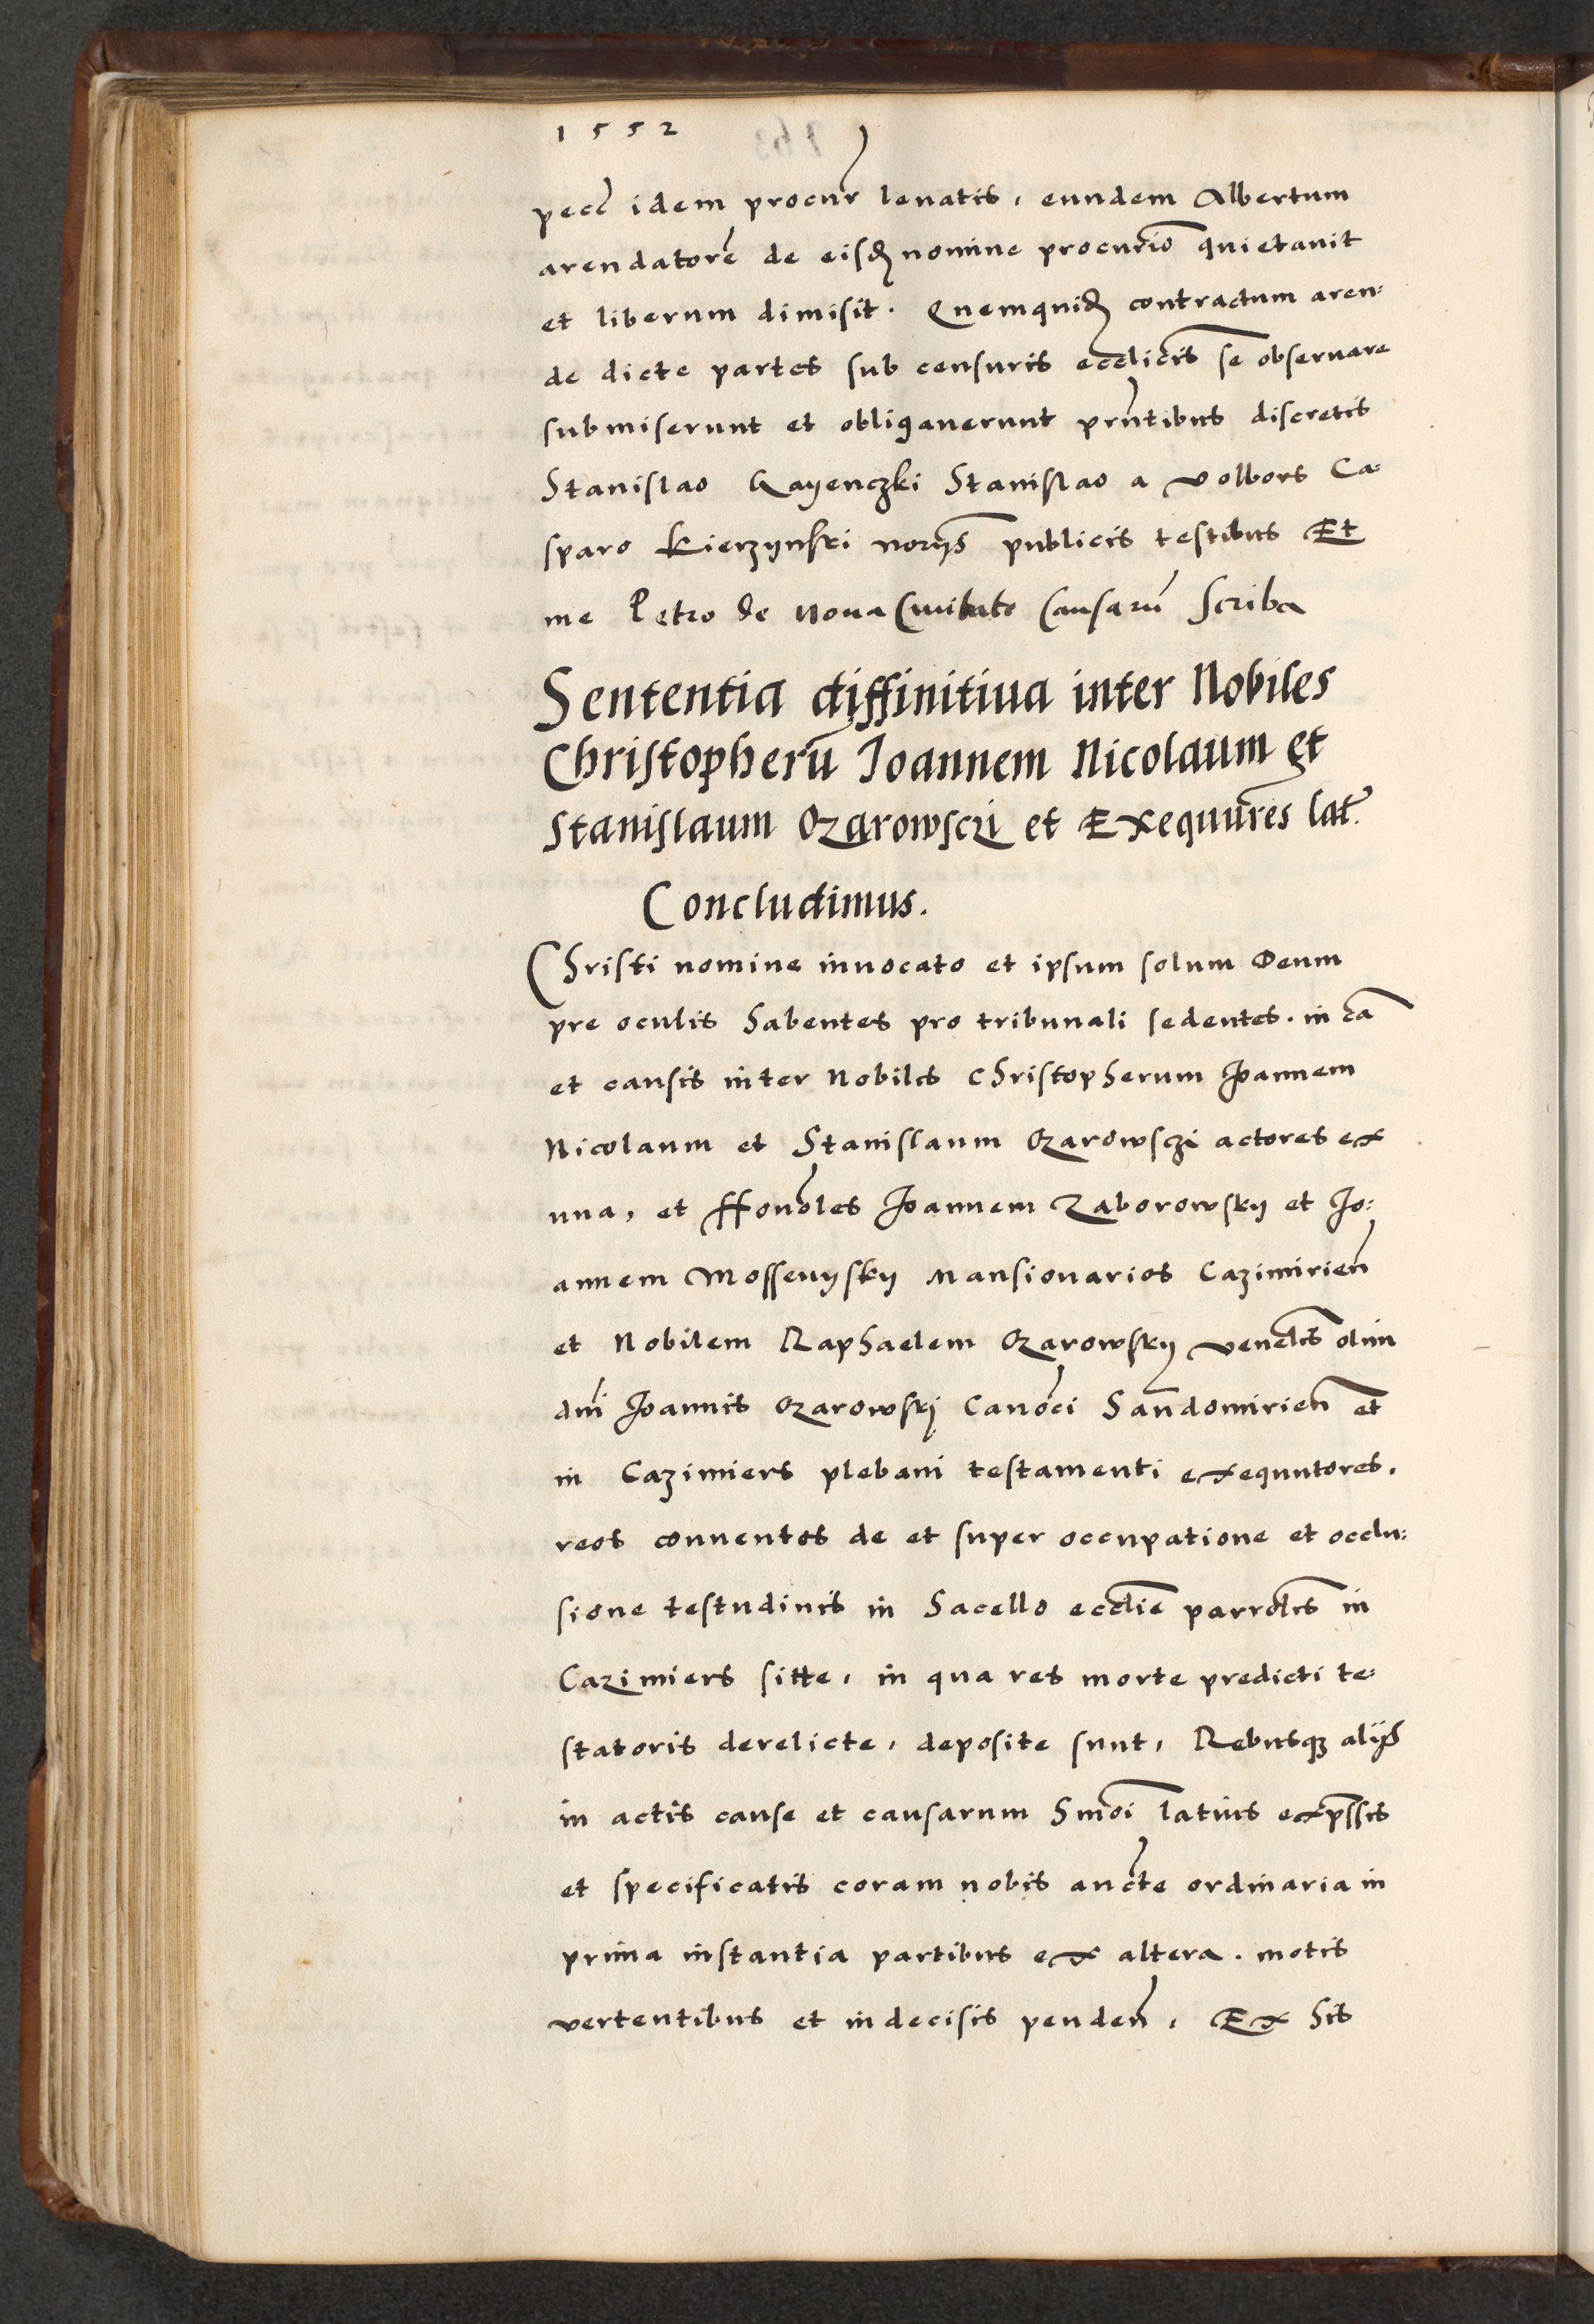 1552
pecc idem procur̃ leuatis, eundem Albertum
arendatorẽ de eisđ nomine procur̃io quietauit
et liberum dimisit. Quemquiđ contractum aren-
de dicte partes sub censuris eccl̃icis se obseruare
submiserunt et obligauerunt pr̃ntibus discretis
Stanislao Gayenczki Stanislao a volbors Ca-
sparo Kierzynski norijs publicis testibus Et
me Petro de Noua Ciuitate Causarũ Scriba
Sententia diffinitiua inter Nobiles
Christopherũ Joannem Nicolaum et
Stanislaum Ozarowsczi et Exequut̃res lat̃.
Concludimus.
Christi nomine inuocato et ipsum solum Deum
pre oculis habentes pro tribunali sedentes. in cã
et causis inter Nobiles Christopherum Joannem
Nicolaum et Stanislaum Ozarowsczi actores ex
una, et Honõles Joannem Zaborowsky et Jo-
annem Mossenysky Mansionarios Cazimirień
et Nobilem Raphaelem Ozarowsky veñelis olim
dñi Joannis Ozarowskj Canõci Sandomirień et
in Cazimiers plebani testamenti exequutores,
reos conuentos de et super occupatione et occlu-
sione testudinis in Sacello eccl̃ie parrol̃is in
Cazimiers sitte, in qua res morte predicti te-
statoris derelicte, deposite sunt, Rebusqꝫ alijs
in actis cause et causarum hm̃oi latius exp̃ssis
et specificatis coram nobis auct̃e ordinaria in
prima instantia partibus ex altera. motis
vertentibus et indecisis pendeñ, Ex his